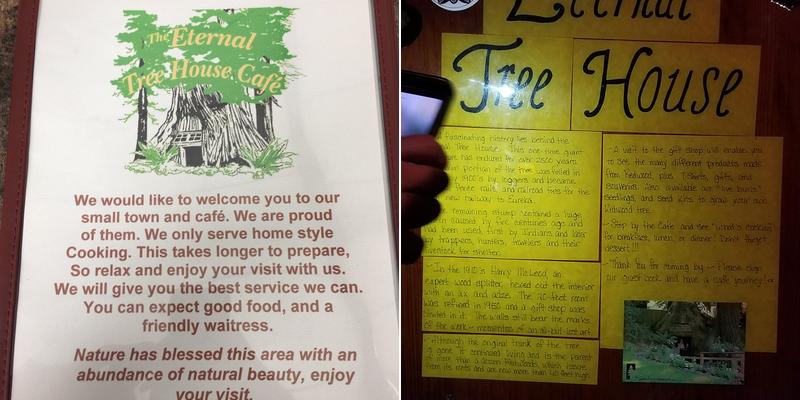 The Eternal
Tree House Café
We would like to welcome you to our
small town and café. We are proud
of them. We only serve home style
Cooking. This takes longer to prepare,
So relax and enjoy your visit with us.
We will give you the best service we can.
You can expect good food, and a
friendly waitress.
Nature has blessed this area with an
abundance of natural beauty, enjoy
your visit.
Eternal
Tree House
A fascinating history lies behind the
Tree House. This one-time giant
had endured for over 2500 years
portion of the tree was felled in
1900's by loggers and became
and railroad ties for the
new railway to Eureka.
remaining stump contained a huge
caused by fire centuries ago and
had been used, first by Indians and later
by trappers, hunters, travelers and their
livestock for shelter.
-In the 1910's Harry McLeod, an
expert wood splitter, hewed out the interior
with an ax and adze. The 20-foot room
was refined in 1950 and a gift shop was
started in it. The walls still bear the marks
of the work - mementos of an all-but-lost art.
-Although the original trunk of the tree
is gone it continued living and is the parent
of more than a dozen Redwoods which
from its roots and are now more than 40 feet high.
-A visit to the gift shop will enable you
to see the many different products made
from Redwood, plus T-Shirts, gifts, and
souvenirs. Also available are "live burls",
seedlings, and seed kits to grow your own
Redwood tree.
-Stop by the Cafe and see "what's cooking"
for breakfast, lunch, or dinner. Don't forget
dessert!!!
-Thank You for coming by -- Please sign
our guest book and have a safe journey!